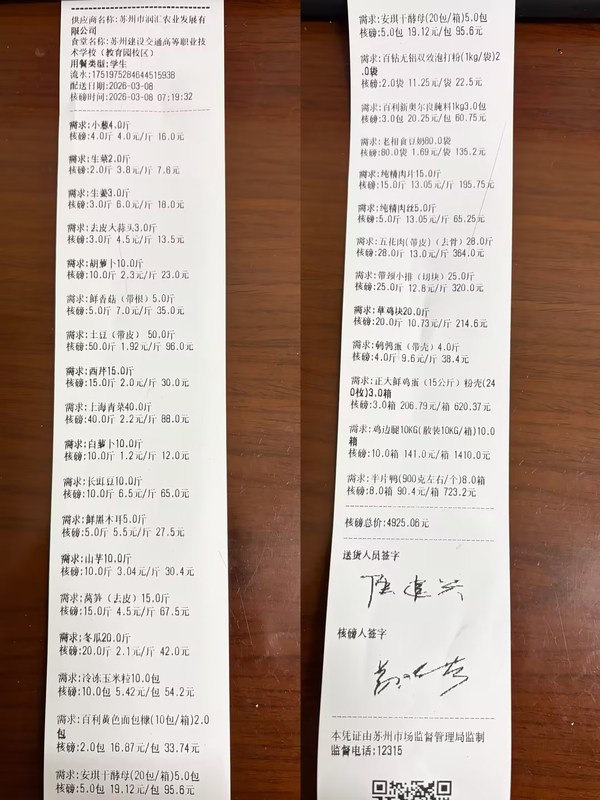 供应商名称:苏州市润汇农业发展有
限公司
食堂名称:苏州建设交通高等职业技
术学校（教育园校区）
用餐类型:学生
流水:1751975284644515938
配送日期:2026-03-08
核磅时间:2026-03-08 07:19:32
需求:小葱4.0斤
核磅:4.0斤 4.0元/斤 16.0元
需求:生菜2.0斤
核磅:2.0斤 3.8元/斤 7.6元
需求:生姜3.0斤
核磅:3.0斤 6.0元/斤 18.0元
需求:去皮大蒜头3.0斤
核磅:3.0斤 4.5元/斤 13.5元
需求:胡萝卜10.0斤
核磅:10.0斤 2.3元/斤 23.0元
需求:鲜香菇（带根）5.0斤
核磅:5.0斤 7.0元/斤 35.0元
需求:土豆（带皮） 50.0斤
核磅:50.0斤 1.92元/斤 96.0元
需求:西芹15.0斤
核磅:15.0斤 2.0元/斤 30.0元
需求:上海青菜40.0斤
核磅:40.0斤 2.2元/斤 88.0元
需求:白萝卜10.0斤
核磅:10.0斤 1.2元/斤 12.0元
需求:长豇豆10.0斤
核磅:10.0斤 6.5元/斤 65.0元
需求:鲜黑木耳5.0斤
核磅:5.0斤 5.5元/斤 27.5元
需求:山芋10.0斤
核磅:10.0斤 3.04元/斤 30.4元
需求:莴笋（去皮）15.0斤
核磅:15.0斤 4.5元/斤 67.5元
需求:冬瓜20.0斤
核磅:20.0斤 2.1元/斤 42.0元
需求:冷冻玉米粒10.0包
核磅:10.0包 5.42元/包 54.2元
需求:百利黄色面包糠(10包/箱)2.0
包
核磅:2.0包 16.87元/包 33.74元
需求:安琪干酵母(20包/箱)5.0包
核磅:5.0包 19.12元/包 95.6元
需求:安琪干酵母(20包/箱)5.0包
核磅:5.0包 19.12元/包 95.6元
需求:百钻无铝双效泡打粉(1kg/袋)2
.0袋
核磅:2.0袋 11.25元/袋 22.5元
需求:百利新奥尔良腌料1kg3.0包
核磅:3.0包 20.25元/包 60.75元
需求:老相食豆奶80.0袋
核磅:80.0袋 1.69元/袋 135.2元
需求:纯精肉片15.0斤
核磅:15.0斤 13.05元/斤 195.75元
需求:纯精肉丝5.0斤
核磅:5.0斤 13.05元/斤 65.25元
需求:五花肉(带皮)(去骨)28.0斤
核磅:28.0斤 13.0元/斤 364.0元
需求:带颈小排（切块）25.0斤
核磅:25.0斤 12.8元/斤 320.0元
需求:草鸡块20.0斤
核磅:20.0斤 10.73元/斤 214.6元
需求:鹌鹑蛋（带壳）4.0斤
核磅:4.0斤 9.6元/斤 38.4元
需求:正大鲜鸡蛋（15公斤）粉壳(24
0枚)3.0箱
核磅:3.0箱 206.79元/箱 620.37元
需求:鸡边腿10KG(散装10KG/箱)10.0
箱
核磅:10.0箱 141.0元/箱 1410.0元
需求:半片鸭(900克左右/个)8.0箱
核磅:8.0箱 90.4元/箱 723.2元
核磅总价:4925.06元
送货人员签字
核磅人签字
本凭证由苏州市场监督管理局监制
监督电话:12315